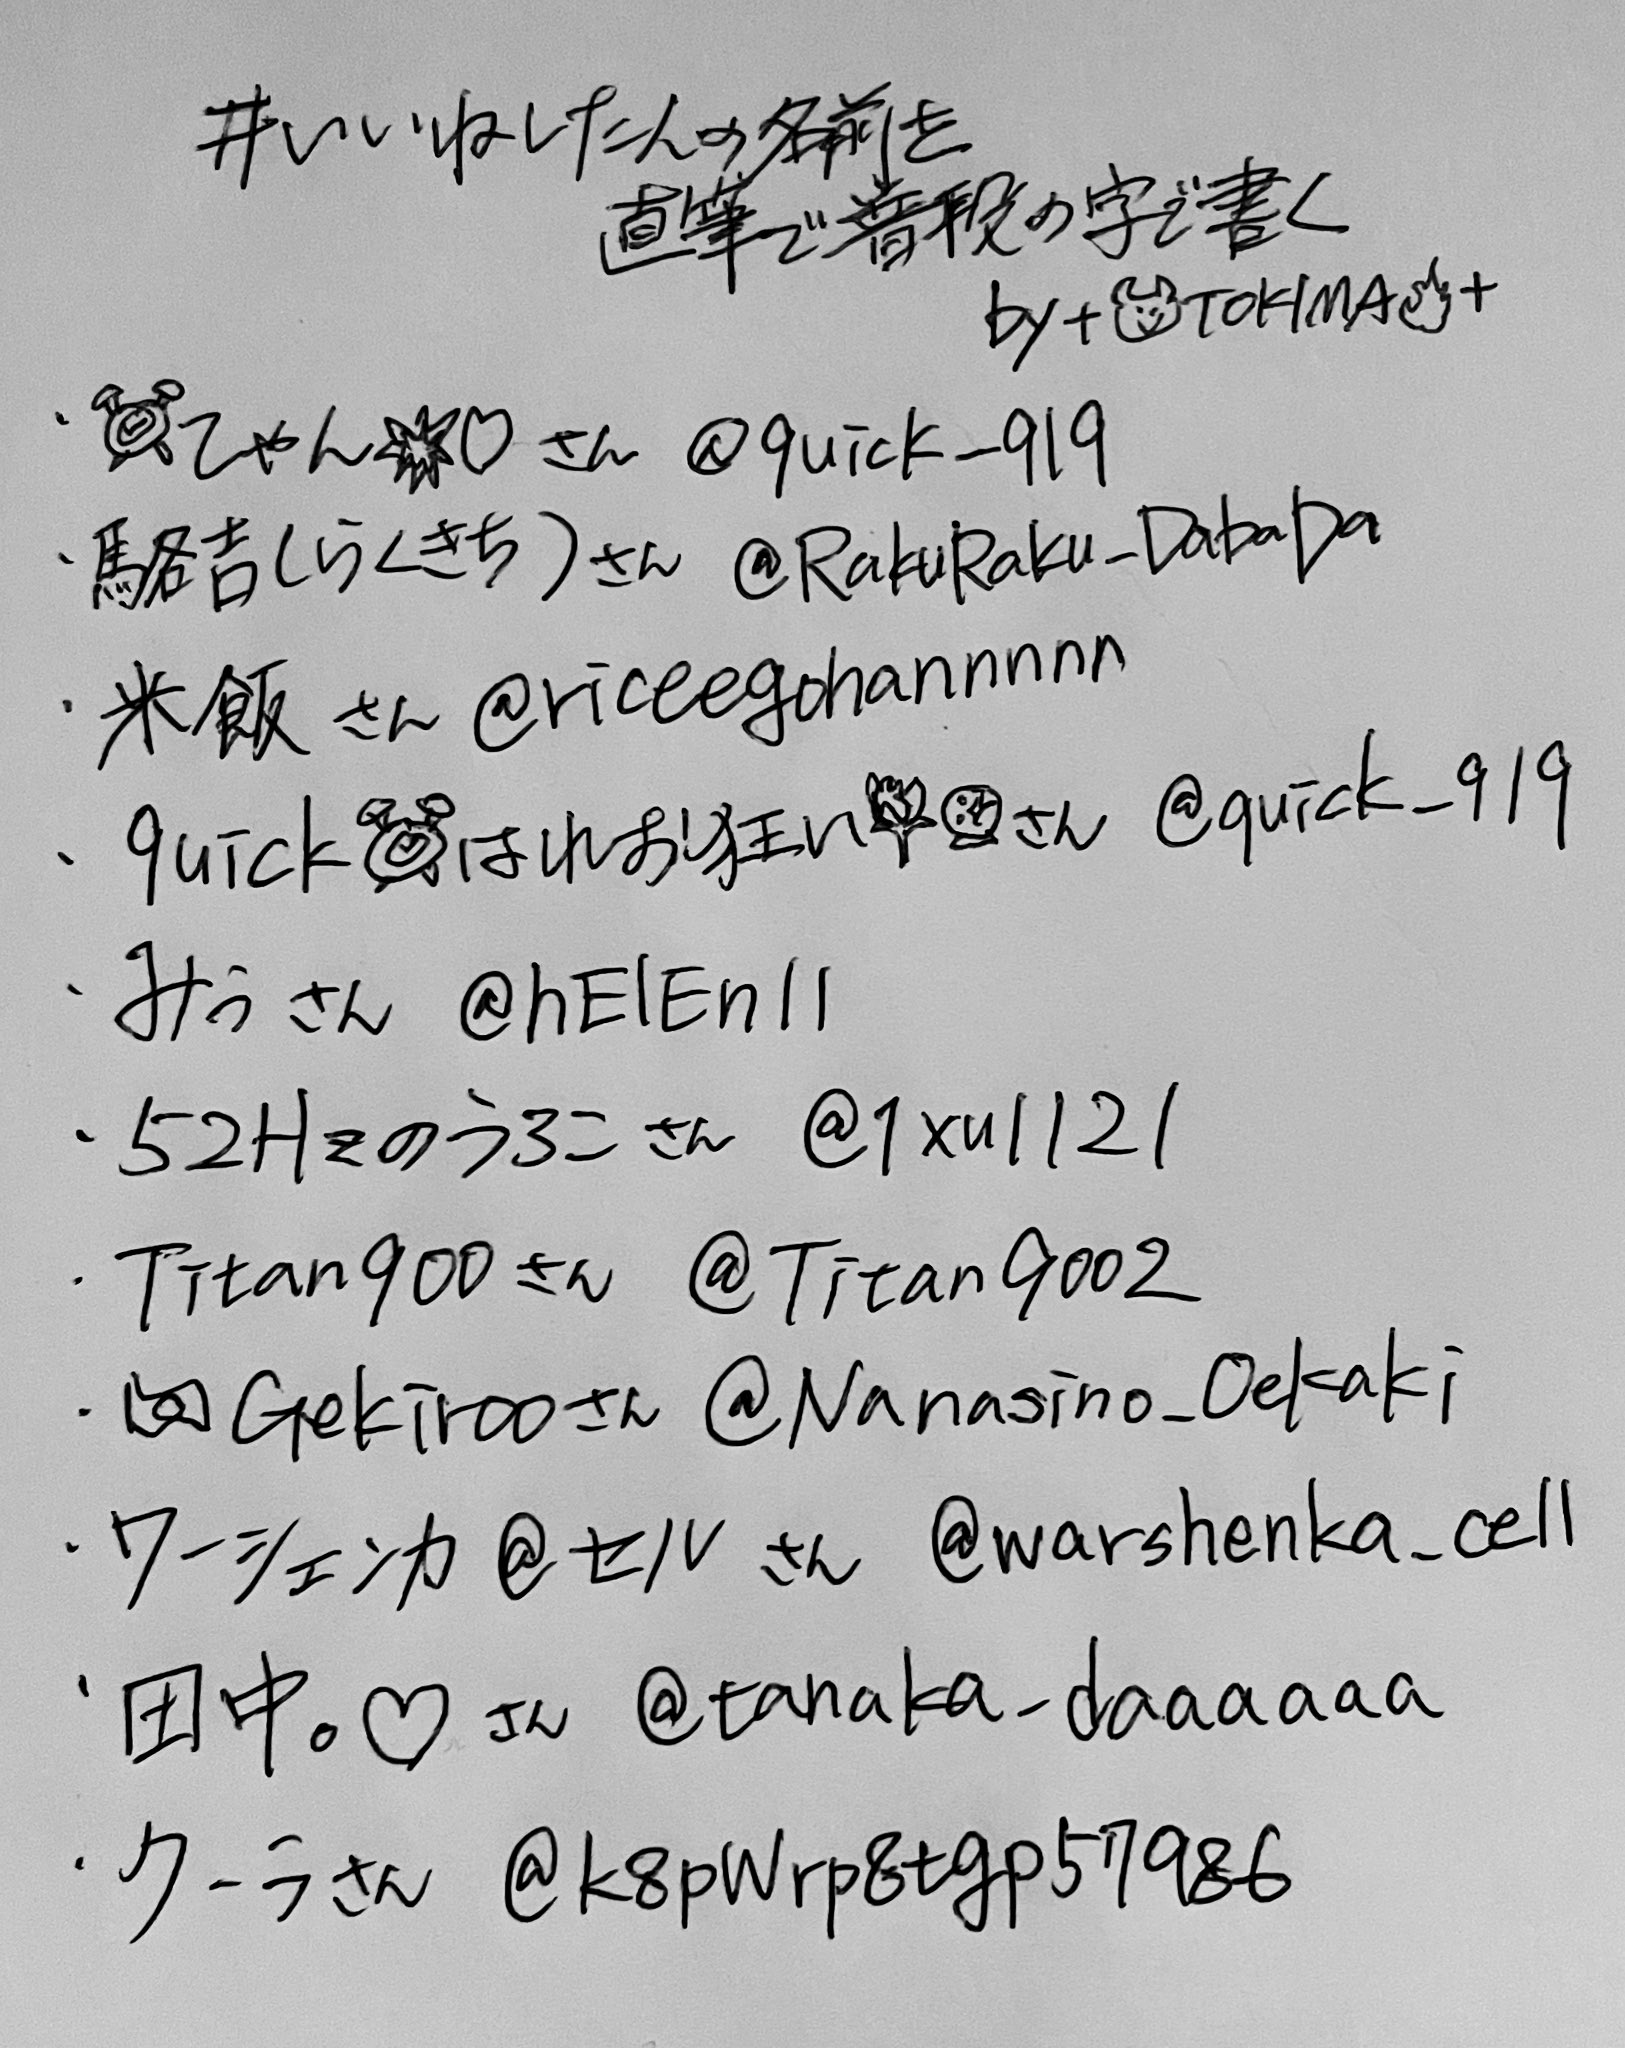 #いいねした人の名前を
直筆で普段の字で書く
by+😈TOKIMA🔥+
・⏰てゃん💥♡さん @quick_919
・駱吉(らくきち)さん @RakuRaku_DabaDa
・米飯さん @riceegohannnnnn
・quick⏰はれお狂い🌷さん @quick_919
・みうさん @hElEn11
・52Hzのうろこさん @1xu1121
・Titan900さん @Titan9002
・Gekirooさん @Nanasino_Oekaki
・ワーシェンカ@セルさん @warshenka_cell
・田中。♡さん @tanaka_daaaaaa
・クーラさん @k8pWrp8tgp57986